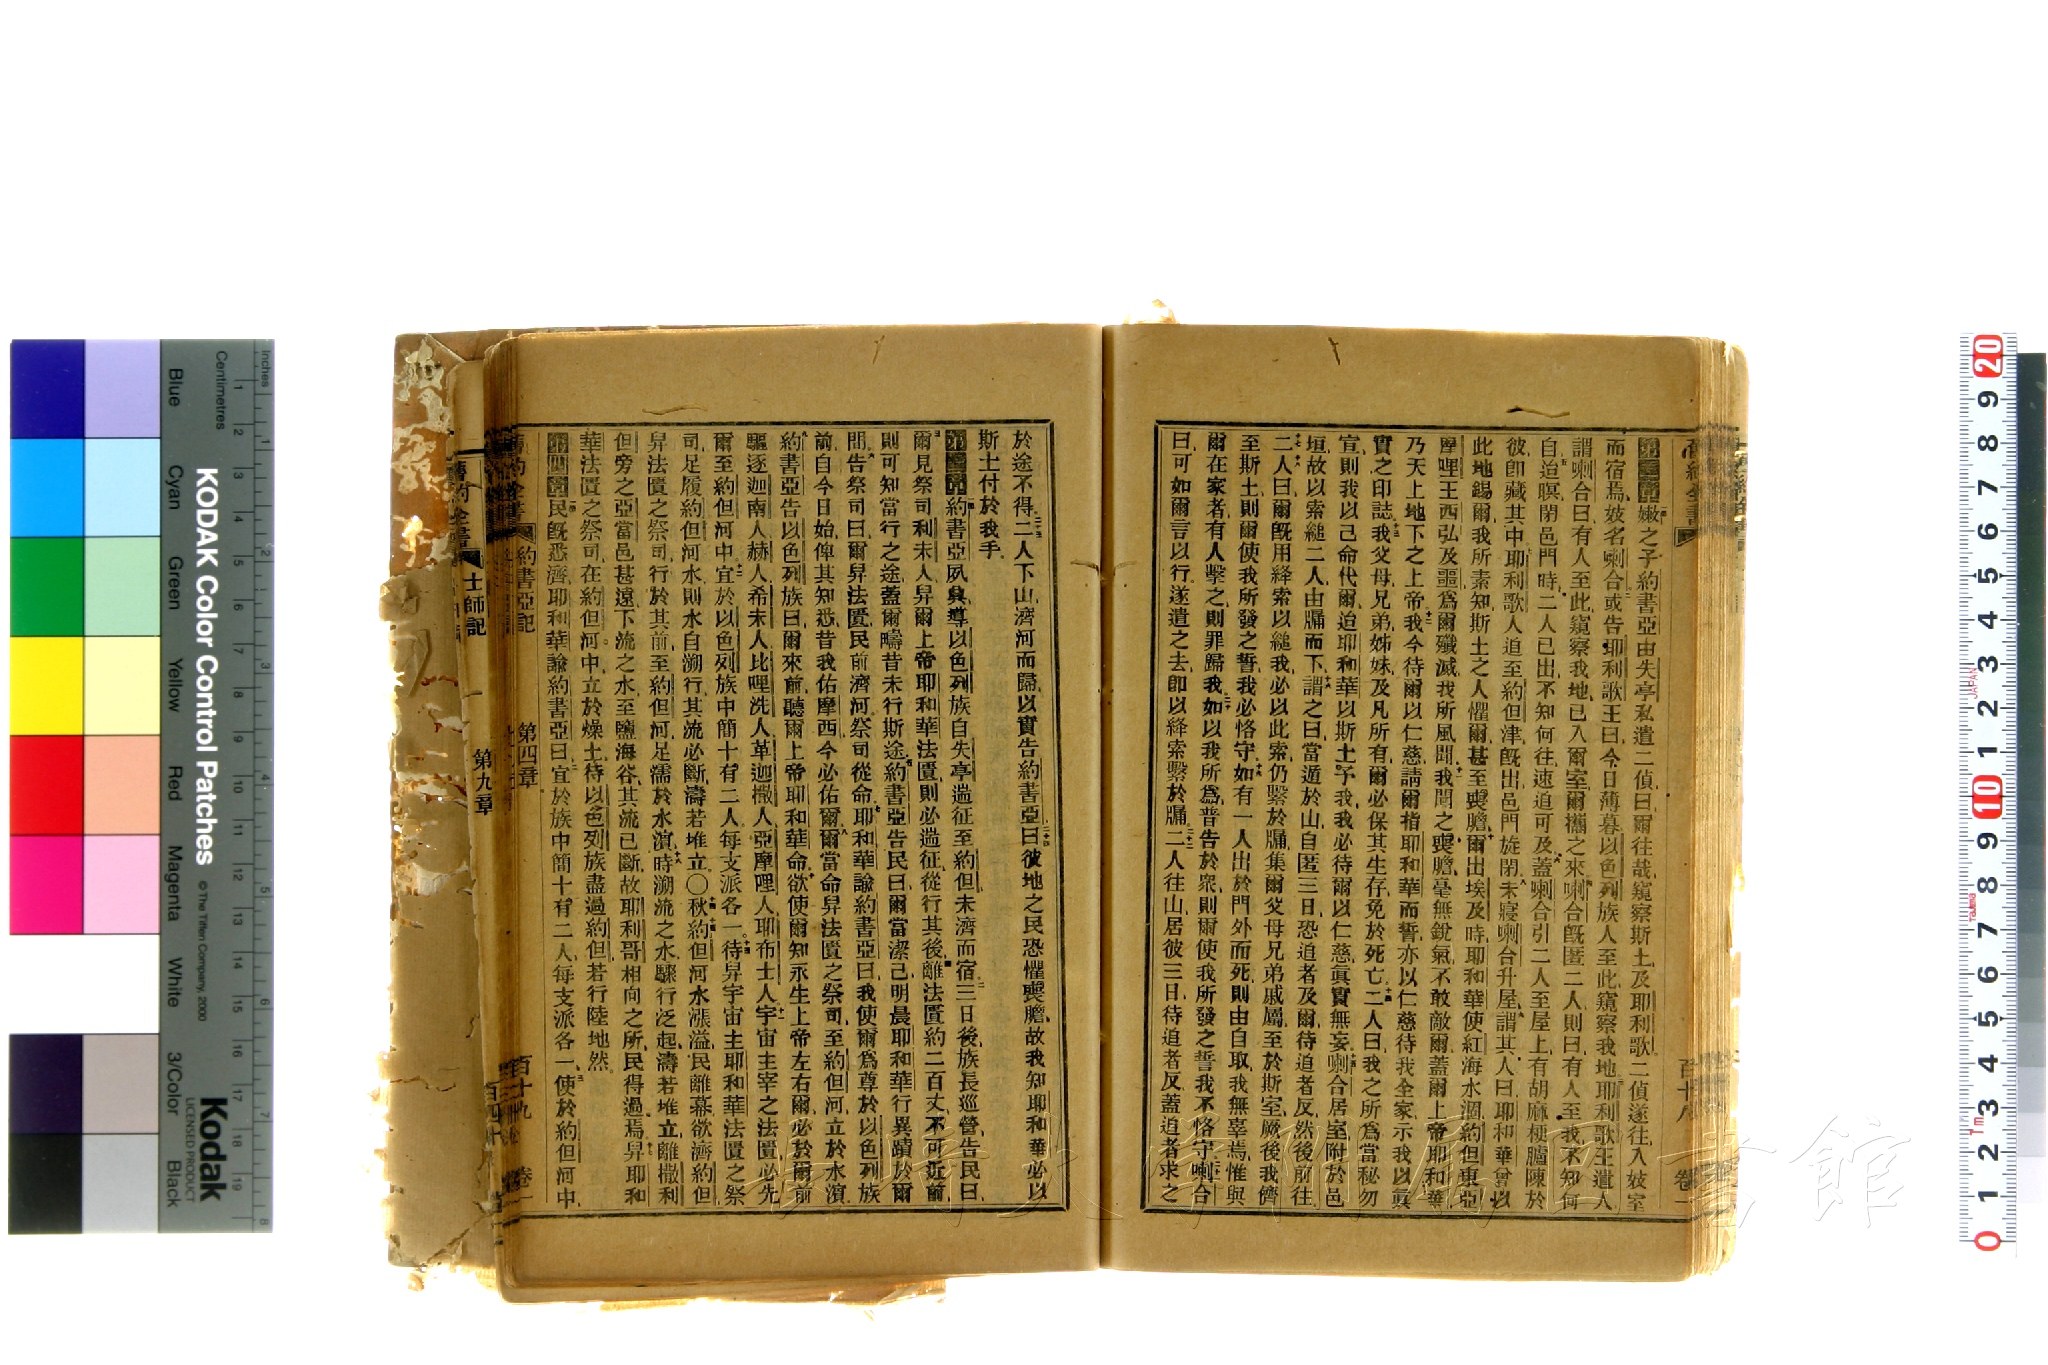 第二章嫩之子約書亞由失亭私遣二偵曰爾往哉窺察斯土及耶利歌二偵遂往入妓室
而宿焉妓名喇合或告耶利歌王曰今日薄暮以色列族人至此窺察我地耶利歌王遣人
謂喇合曰有人至此窺察我地已入爾室爾攜之來喇合旣匿二人則曰有人至我不知何
自迨暝閉邑門時二人已出不知何往速追可及蓋喇合引二人至屋上有胡麻梗臚陳於
彼卽藏其中耶利歌人追至約但津旣出邑門旋閉未寢喇合升屋謂其人曰耶和華曾以
此地錫爾我所素知斯土之人懼爾甚至喪膽爾出埃及時耶和華使紅海水涸約但東亞
摩哩王西弘及噩爲爾殲滅我所風聞我聞之喪膽毫無銳氣不敢敵爾蓋爾上帝耶和華
乃天上地下之上帝我今待爾以仁慈請爾指耶和華而誓亦以仁慈待我全家示我以眞
實之印誌我父母兄弟姊妹及凡所有爾必保其生存免於死亡二人曰我之所爲當秘勿
宣則我以己命代爾迨耶和華以斯土予我我必待爾以仁慈眞實無妄喇合居室附於邑
垣故以索縋二人由牖而下謂之曰當遁於山自匿三日恐追者及爾待追者反然後前往
二人曰爾旣用絳索以縋我必以此索仍繫於牖集爾父母兄弟戚屬至於斯室厥後我儕
至斯土則爾使我所發之誓我必恪守如有一人出於門外而死則由自取我無辜焉惟與
爾在家者有人擊之則罪歸我如以我所爲普告於衆則爾使我所發之誓我不恪守喇合
曰可如爾言以行遂遣之去卽以絳索繫於牖二人往山居彼三日待追者反蓋追者求之
百十八
於途不得二人下山濟河而歸以實告約書亞曰彼地之民恐懼喪膽故我知耶和華必以
斯土付於我手
第三章約書亞夙興導以色列族自失亭遄征至約但未濟而宿三日後族長巡營告民曰
爾見祭司利未人舁爾上帝耶和華法匱則必遄征從行其後離法匱約二百丈不可近前
則可知當行之途蓋爾疇昔未行斯途約書亞告民曰爾當潔己明晨耶和華行異蹟於爾
間告祭司曰爾舁法匱民前濟河祭司從命耶和華諭約書亞曰我使爾爲尊於以色列族
前自今日始俾其知悉昔我佑摩西今必佑爾爾當命舁法匱之祭司至約但河立於水濱
約書亞告以色列族曰爾來前聽爾上帝耶和華命欲使爾知永生上帝左右爾必於爾前
驅逐迦南人赫人希未人比哩洗人革迦撒人亞摩哩人耶布士人宇宙主宰之法匱必先
爾至約但河中宜於以色列族中簡十有二人每支派各一待舁宇宙主耶和華法匱之祭
司足履約但河水則水自溯行其流必斷濤若堆立〇秋約但河水漲溢民離幕欲濟約但
舁法匱之祭司行於其前至約但河足濡於水濱時溯流之水驟行泛起濤若堆立離撒利
但旁之亞當邑甚遠下流之水至鹽海谷其流已斷故耶利哥相向之所民得過焉舁耶和
華法匱之祭司在約但河中立於燥土待以色列族盡過約但若行陸地然
第四章民旣悉濟耶和華諭約書亞曰宜於族中簡十有二人每支派各一使於約但河中
舊約全書 約書亞記 第四章 百十九 卷一
舊約全書 士師記 第九章 百四十
KODAK Color Control Patches
© The Tiffen Company, 2000
Kodak
LICENSED PRODUCT
Inches
Centimetres
Blue
Cyan
Green
Yellow
Red
Magenta
White
3/Color
Black
JAPAN
書館